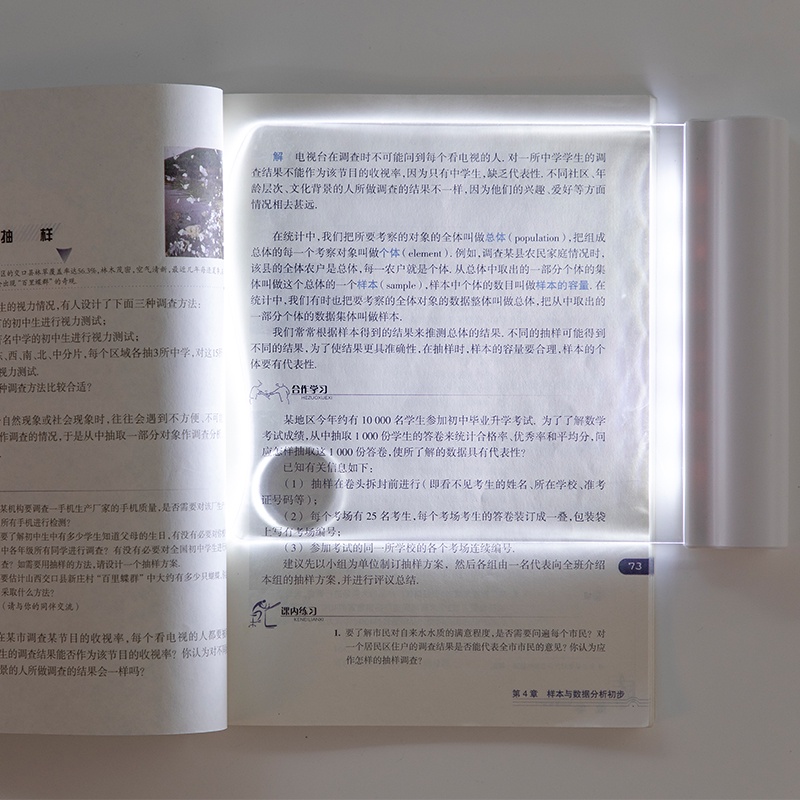 抽 样
区的交口县林草覆盖率达56.3%,林木茂密,空气清新,最近几年每逢夏
出现“百里蝶群”的奇观.
生的视力情况,有人设计了下面三种调查方法:
的初中生进行视力测试;
名中学的初中生进行视力测试;
东、西、南、北、中分片,每个区域各抽3所中学,对这15所
视力测试.
种调查方法比较合适?
自然现象或社会现象时,往往会遇到不方便、不可
作调查的情况,于是从中抽取一部分对象作调查分析
某机构要调查一手机生产厂家的手机质量,是否需要对该厂生产
所有手机进行检测?
要了解初中生中有多少学生知道父母的生日,有没有必要对
中各年级所有同学进行调查?有没有必要对全国初中学生进行
查?如需要用抽样的方法,请设计一个抽样方案.
要估计山西交口县新庄村“百里蝶群”中大约有多少只蝴蝶,
采取什么方法?
(请与你的同伴交流)
在某市调查某节目的收视率,每个看电视的人都要被
生的调查结果能否作为该节目的收视率?你认为对不同
景的人所做调查的结果会一样吗?
解 电视台在调查时不可能问到每个看电视的人.对一所中学学生的调
查结果不能作为该节目的收视率,因为只有中学生,缺乏代表性.不同社区、年
龄层次、文化背景的人所做调查的结果不一样,因为他们的兴趣、爱好等方面
情况相去甚远.
在统计中,我们把所要考察的对象的全体叫做总体(population),把组成
总体的每一个考察对象叫做个体(element).例如,调查某县农民家庭情况时,
该县的全体农户是总体,每一农户就是个体.从总体中取出的一部分个体的集
体叫做这个总体的一个样本(sample),样本中个体的数目叫做样本的容量.在
统计中,我们有时也把要考察的全体对象的数据整体叫做总体,把从中取出的
一部分个体的数据集体叫做样本.
我们常常根据样本得到的结果来推测总体的结果.不同的抽样可能得到
不同的结果,为了使结果更具准确性,在抽样时,样本的容量要合理,样本的个
体要有代表性.
合作学习
HEZUOXUEXI
某地区今年约有10 000名学生参加初中毕业升学考试.为了了解数学
考试成绩,从中抽取1 000份学生的答卷来统计合格率、优秀率和平均分,问
应怎样抽取这1 000份答卷,使所了解的数据具有代表性?
已知有关信息如下:
(1) 抽样在卷头拆封前进行(即看不见考生的姓名、所在学校、准考
证号码等);
(2) 每个考场有25名考生,每个考场考生的答卷装订成一叠,包装袋
上写有考场编号;
(3) 参加考试的同一所学校的各个考场连续编号.
建议先以小组为单位制订抽样方案,然后各组由一名代表向全班介绍
本组的抽样方案,并进行评议总结.
73
课内练习
KENEILIANXI
1. 要了解市民对自来水水质的满意程度,是否需要问遍每个市民?对
一个居民区住户的调查结果是否能代表全市市民的意见?你认为应
作怎样的抽样调查?
第4章 样本与数据分析初步